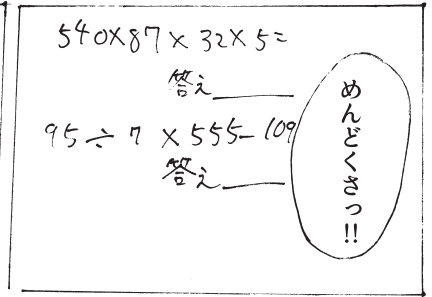 540×87×32×5=
答え
95÷7×555-109
答え
めんどくさっ!!